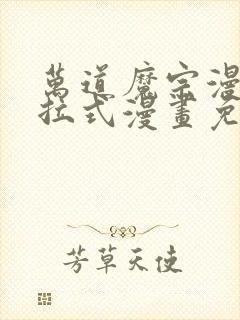 萬道魔宗漫
拉式漫畫免
芳草天使